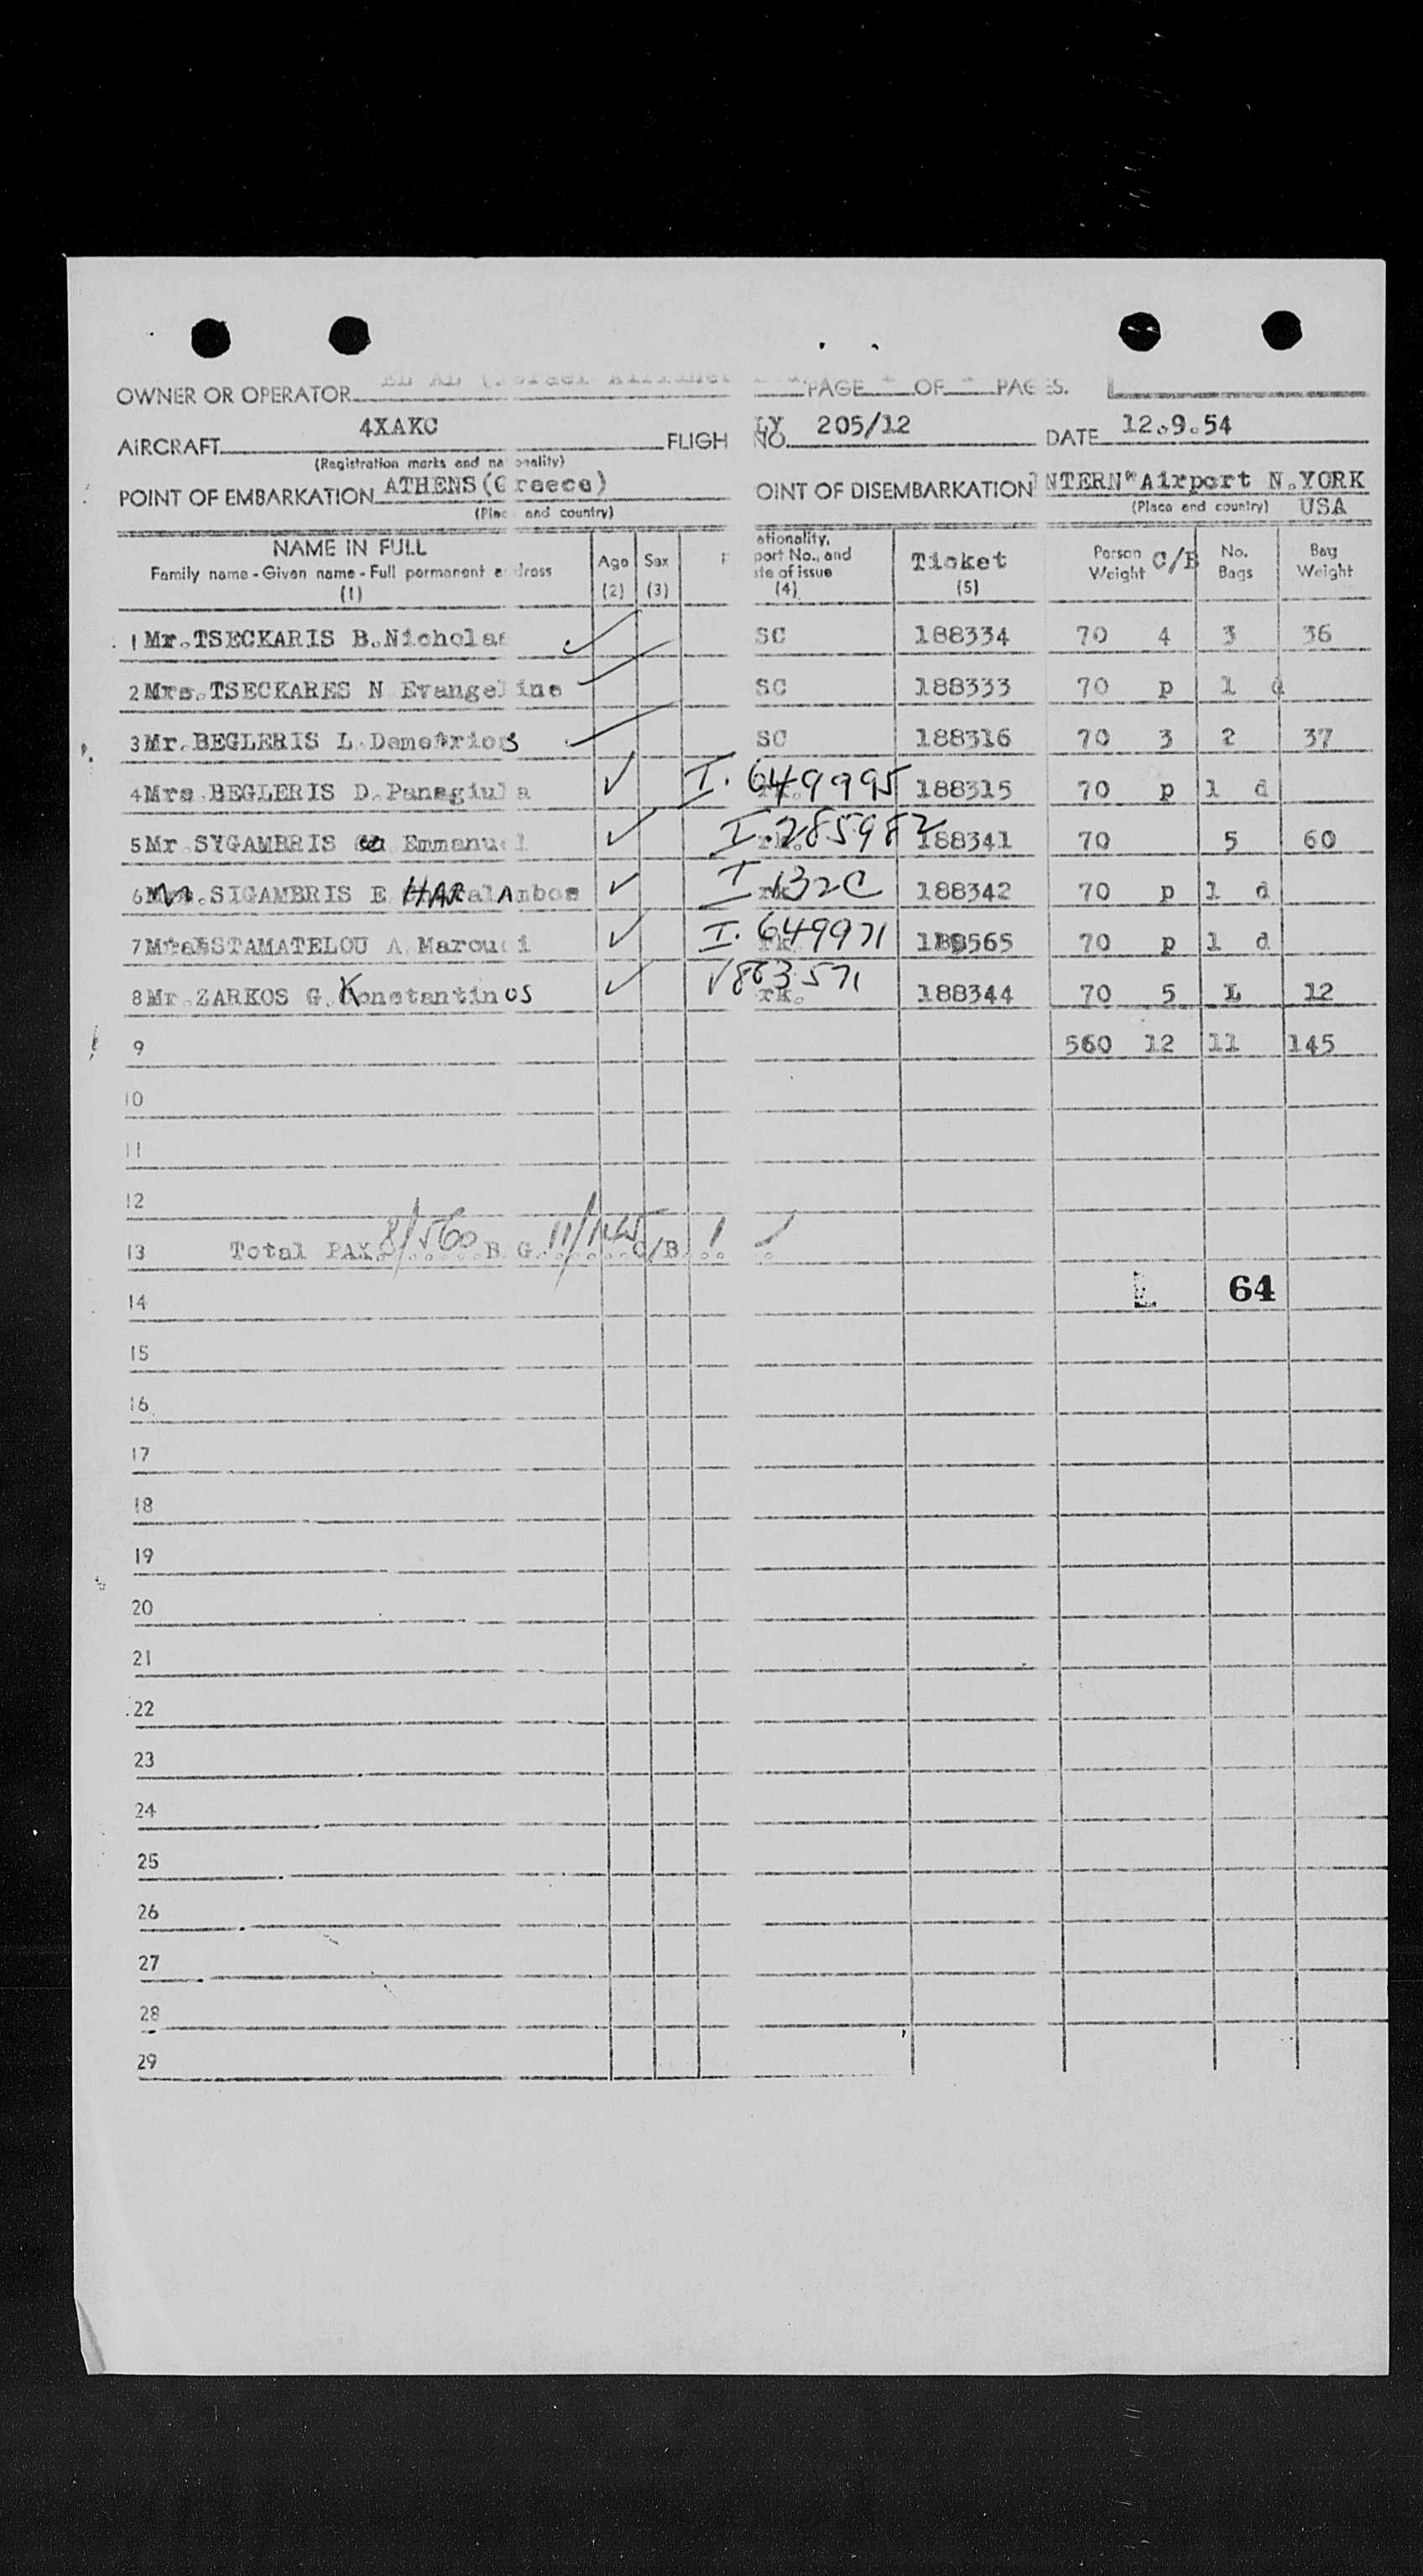 OWNER OR OPERATOR EL AL (Israel Airlines PAGE OF PAGES.
AIRCRAFT 4XAKC FLIGH LY NO. 205/12 DATE 12.9.54
(Registration marks and nationality)
POINT OF EMBARKATION ATHENS(Greece) OINT OF DISEMBARKATION INTERN" Airport N.YORK
(Place and country) (Place and country) USA
NAME IN FULL Age Sex ationality, Ticket Person C/B No. Bag
Family name - Given name - Full permanent address port No., and Weight Bags Weight
ate of issue
(1) (2) (3) (4) (5)
1 Mr.TSECKARIS B.Nicholas SC 188334 70 4 3 36
2 Mrs.TSECKARES N Evangeline SC 188333 70 p 1 d
3 Mr.BEGLERIS L.Demetrios SC 188316 70 3 2 37
4 Mrs.BEGLERIS D.Panagiula I. 649995 188315 70 p 1 d
5 Mr SYGAMBRIS Emmanuel I.285982 rk. 188341 70 5 60
6 SIGAMBRIS E HARalAmbos I 132C rk 188342 70 p 1 d
7 STAMATELOU A.Marouci I. 649971 rk. 565 70 p 1 d
8 Mr.ZARKOS G.Konstantinos 863571 rk. 188344 70 5 L 12
9 560 12 11 145
10
11
12
13 Total PAX. 8/560 B.G. 11/145 C/B. /
14 64
15
16
17
18
19
20
21
22
23
24
25
26
27
28
29